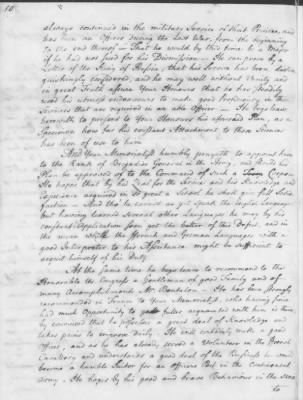 10
always continued in the military Service of that Prince, and
has been an Officer during the last War, from the beginning
to the end thereof — That he would by this time be a Major
if he had not sued for his Dismission — He can prove by a
Letter of the King of Prussia, that his Leave has been
conferred, and he may well without Vanity and
in great Truth assure Your Honours that he has steadily
used his utmost endeavours to make good proficiency in these
Services that are required in an able Officer — He begs leave
herewith to present to Your Honours his Plan, as a
Specimen how far his constant Attachment to these Sciences
has been of use to him
And Your Memorialist humbly prayeth to appoint him
to the Rank of Brigadier General in the Army, and should his
Plan be approved of to the Command of such a Corps
He hopes that by his Zeal for the Service and his Knowledge and
Experience acquired in so great a School he shall give full Satis
faction — And tho' he cannot as yet speak the English Language
but having learned several other Languages he may by his
constant Application soon get the better of this Defect, and in
the mean while the French and German Languages with a
good Interpreter to his Assistance might be sufficient to
acquit himself of his Duty
At the same time he begs leave to recommend to the
Honorable the Congress a Gentleman of good Family and of
many Accomplishments Mr. He has been strongly
recommended in France to Your Memorialist, who having since
had much Opportunity to get fuller acquainted with him is there
by convinced that he possesses a great deal of Knowledge and
takes pains to improve daily. He will certainly make a good
Officer, and as he has already served a Volunteer in the French
Cavallery and understands a good deal of the Business he would
become a humble Suitor for an Officers Post in the Continental
Army. He hopes by his good and brave Behaviour in the same
to